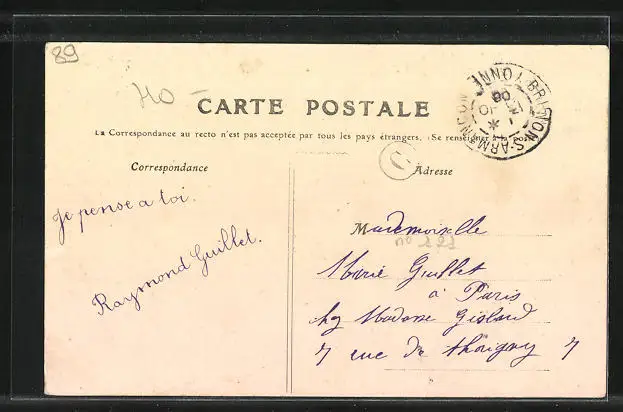 89
40 -
CARTE POSTALE
La Correspondance au recto n'est pas acceptée par tous les pays étrangers. (Se renseigner à la poste
Correspondance
Adresse
BRIENON-S-ARMANÇON YONNE
08
Je pense a toi.
Raymond Guillet.
Mademoiselle
nº 227
Marie Guillet
à Paris
chez Madame
7 rue de thorigny 7